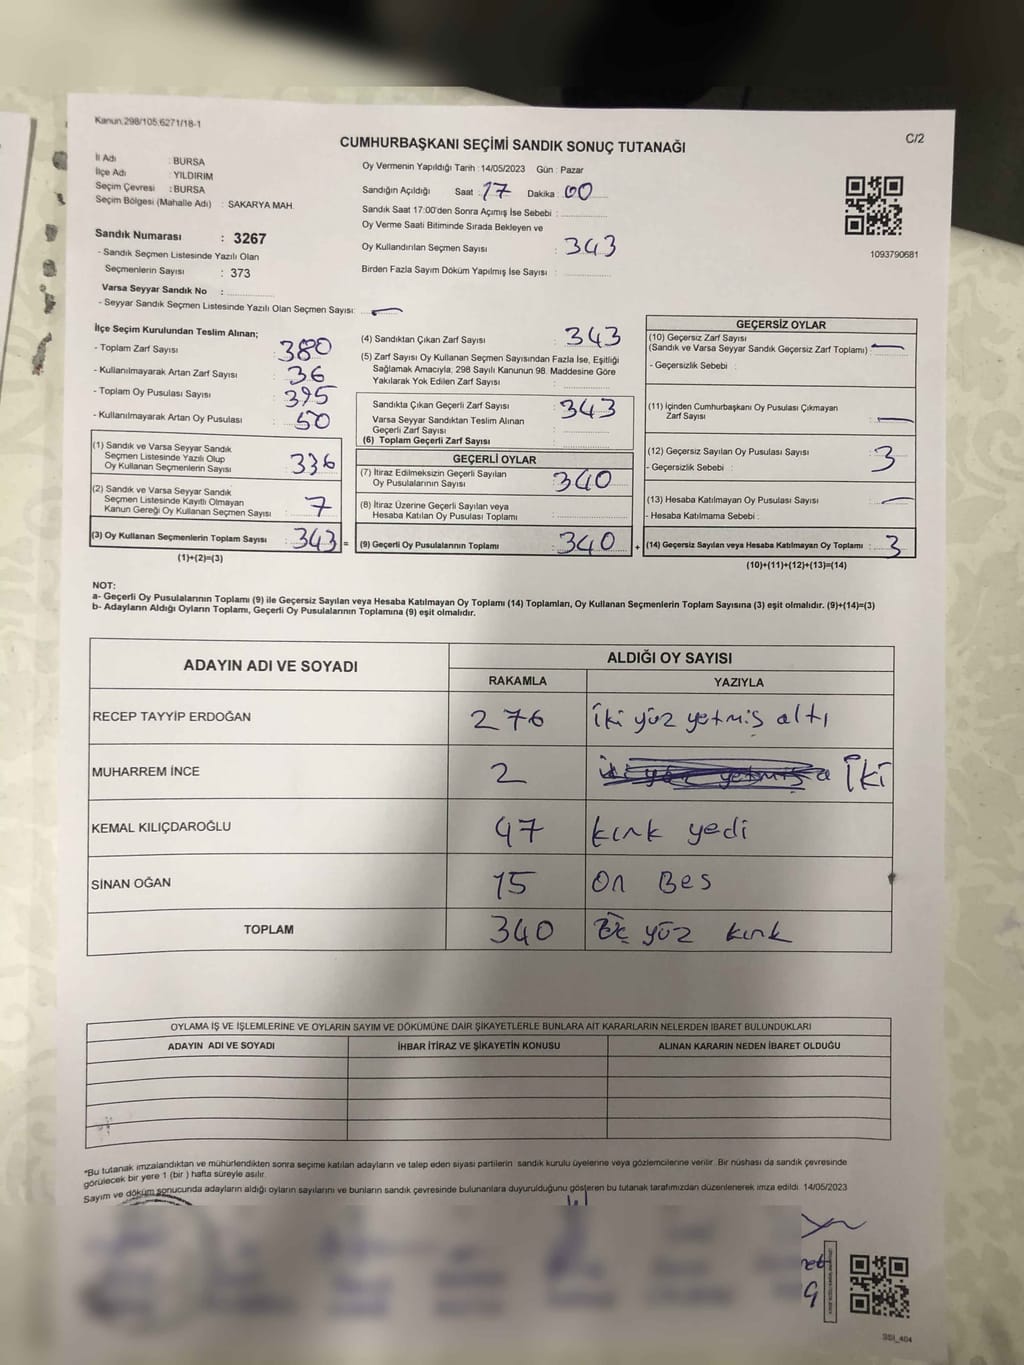 Kanun.298/105.6271/18-1
C/2
CUMHURBAŞKANI SEÇİMİ SANDIK SONUÇ TUTANAĞI
İl Adı : BURSA
İlçe Adı : YILDIRIM
Seçim Çevresi : BURSA
Seçim Bölgesi (Mahalle Adı) : SAKARYA MAH.
Sandık Numarası : 3267
- Sandık Seçmen Listesinde Yazılı Olan
Seçmenlerin Sayısı : 373
Varsa Seyyar Sandık No :
- Seyyar Sandık Seçmen Listesinde Yazılı Olan Seçmen Sayısı: —
Oy Vermenin Yapıldığı Tarih : 14/05/2023 Gün : Pazar
Sandığın Açıldığı Saat : 17 Dakika : 00
Sandık Saat 17:00'den Sonra Açımış İse Sebebi :
Oy Verme Saati Bitiminde Sırada Bekleyen ve
Oy Kullandırılan Seçmen Sayısı : 343
Birden Fazla Sayım Döküm Yapılmış İse Sayısı :
1093790681
İlçe Seçim Kurulundan Teslim Alınan;
- Toplam Zarf Sayısı : 380
- Kullanılmayarak Artan Zarf Sayısı : 36
- Toplam Oy Pusulası Sayısı : 395
- Kullanılmayarak Artan Oy Pusulası : 50
(1) Sandık ve Varsa Seyyar Sandık
Seçmen Listesinde Yazılı Olup
Oy Kullanan Seçmenlerin Sayısı : 336
(2) Sandık ve Varsa Seyyar Sandık
Seçmen Listesinde Kayıtlı Olmayan
Kanun Gereği Oy Kullanan Seçmen Sayısı : 7
(3) Oy Kullanan Seçmenlerin Toplam Sayısı : 343 =
(1)+(2)=(3)
(4) Sandıktan Çıkan Zarf Sayısı : 343
(5) Zarf Sayısı Oy Kullanan Seçmen Sayısından Fazla İse, Eşitliği
Sağlamak Amacıyla, 298 Sayılı Kanunun 98. Maddesine Göre
Yakılarak Yok Edilen Zarf Sayısı :
Sandıkta Çıkan Geçerli Zarf Sayısı : 343
Varsa Seyyar Sandıktan Teslim Alınan
Geçerli Zarf Sayısı :
(6) Toplam Geçerli Zarf Sayısı :
GEÇERLİ OYLAR
(7) İtiraz Edilmeksizin Geçerli Sayılan
Oy Pusulalarının Sayısı : 340
(8) İtiraz Üzerine Geçerli Sayılan veya
Hesaba Katılan Oy Pusulası Toplamı :
(9) Geçerli Oy Pusulalarının Toplamı : 340 +
GEÇERSİZ OYLAR
(10) Geçersiz Zarf Sayısı
(Sandık ve Varsa Seyyar Sandık Geçersiz Zarf Toplamı) : —
- Geçersizlik Sebebi :
(11) İçinden Cumhurbaşkanı Oy Pusulası Çıkmayan
Zarf Sayısı : —
(12) Geçersiz Sayılan Oy Pusulası Sayısı : 3
- Geçersizlik Sebebi :
(13) Hesaba Katılmayan Oy Pusulası Sayısı : —
- Hesaba Katılmama Sebebi :
(14) Geçersiz Sayılan veya Hesaba Katılmayan Oy Toplamı : 3
(10)+(11)+(12)+(13)=(14)
NOT:
a- Geçerli Oy Pusulalarının Toplamı (9) ile Geçersiz Sayılan veya Hesaba Katılmayan Oy Toplamı (14) Toplamları, Oy Kullanan Seçmenlerin Toplam Sayısına (3) eşit olmalıdır. (9)+(14)=(3)
b- Adayların Aldığı Oyların Toplamı, Geçerli Oy Pusulalarının Toplamına (9) eşit olmalıdır.
ADAYIN ADI VE SOYADI
ALDIĞI OY SAYISI
RAKAMLA YAZIYLA
RECEP TAYYİP ERDOĞAN 276 iki yüz yetmiş altı
MUHARREM İNCE 2 iki
KEMAL KILIÇDAROĞLU 47 kırk yedi
SİNAN OĞAN 15 On Bes
TOPLAM 340 Üç yüz kırk
OYLAMA İŞ VE İŞLEMLERİNE VE OYLARIN SAYIM VE DÖKÜMÜNE DAİR ŞİKAYETLERLE BUNLARA AİT KARARLARIN NELERDEN İBARET BULUNDUKLARI
ADAYIN ADI VE SOYADI İHBAR İTİRAZ VE ŞİKAYETİN KONUSU ALINAN KARARIN NEDEN İBARET OLDUĞU
*Bu tutanak imzalandıktan ve mühürlendikten sonra seçime katılan adayların ve talep eden siyasi partilerin sandık kurulu üyelerine veya gözlemcilerine verilir. Bir nüshası da sandık çevresinde
görülecek bir yere 1 (bir) hafta süreyle asılır.
Sayım ve döküm sonucunda adayların aldığı oyların sayılarını ve bunların sandık çevresinde bulunanlara duyurulduğunu gösteren bu tutanak tarafımızdan düzenlenerek imza edildi. 14/05/2023